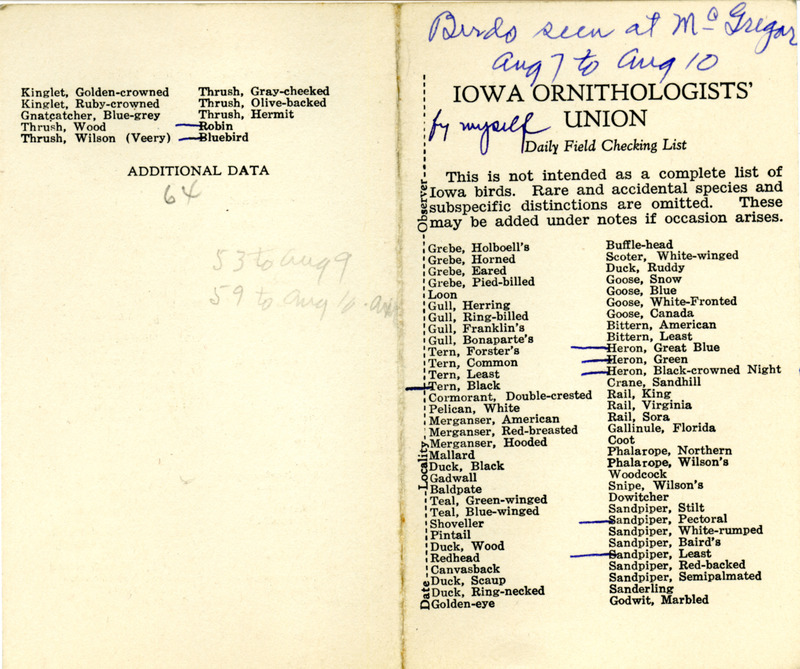 Kinglet, Golden-crowned
Kinglet, Ruby-crowned
Gnatcatcher, Blue-grey
Thrush, Wood
Thrush, Wilson (Veery)
Thrush, Gray-cheeked
Thrush, Olive-backed
Thrush, Hermit
Robin
Bluebird
ADDITIONAL DATA
64
53 to Aug 9
59 to Aug 10
Birds seen at McGregor
Aug 7 to Aug 10
IOWA ORNITHOLOGISTS'
by myself UNION
Daily Field Checking List
This is not intended as a complete list of
Iowa birds. Rare and accidental species and
subspecific distinctions are omitted. These
may be added under notes if occasion arises.
Date Locality Observer
Grebe, Holboell's
Grebe, Horned
Grebe, Eared
Grebe, Pied-billed
Loon
Gull, Herring
Gull, Ring-billed
Gull, Franklin's
Gull, Bonaparte's
Tern, Forster's
Tern, Common
Tern, Least
Tern, Black
Cormorant, Double-crested
Pelican, White
Merganser, American
Merganser, Red-breasted
Merganser, Hooded
Mallard
Duck, Black
Gadwall
Baldpate
Teal, Green-winged
Teal, Blue-winged
Shoveller
Pintail
Duck, Wood
Redhead
Canvasback
Duck, Scaup
Duck, Ring-necked
Golden-eye
Buffle-head
Scoter, White-winged
Duck, Ruddy
Goose, Snow
Goose, Blue
Goose, White-Fronted
Goose, Canada
Bittern, American
Bittern, Least
Heron, Great Blue
Heron, Green
Heron, Black-crowned Night
Crane, Sandhill
Rail, King
Rail, Virginia
Rail, Sora
Gallinule, Florida
Coot
Phalarope, Northern
Phalarope, Wilson's
Woodcock
Snipe, Wilson's
Dowitcher
Sandpiper, Stilt
Sandpiper, Pectoral
Sandpiper, White-rumped
Sandpiper, Baird's
Sandpiper, Least
Sandpiper, Red-backed
Sandpiper, Semipalmated
Sanderling
Godwit, Marbled